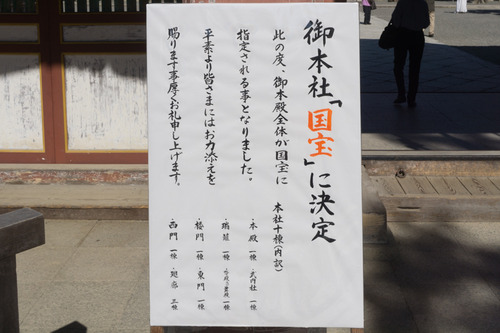 御本社「国宝」に決定
此の度、御本殿全体が国宝に
指定される事となりました。
平素より皆さまにはお力添えを
賜ります事厚くお礼申し上げます。
本社十棟(内訳)
・本殿 一棟 ・武内社 一棟
・瑞籬 一棟 一棟
・楼門 一棟 ・東門 一棟
・西門 一棟 ・廻廊 三棟